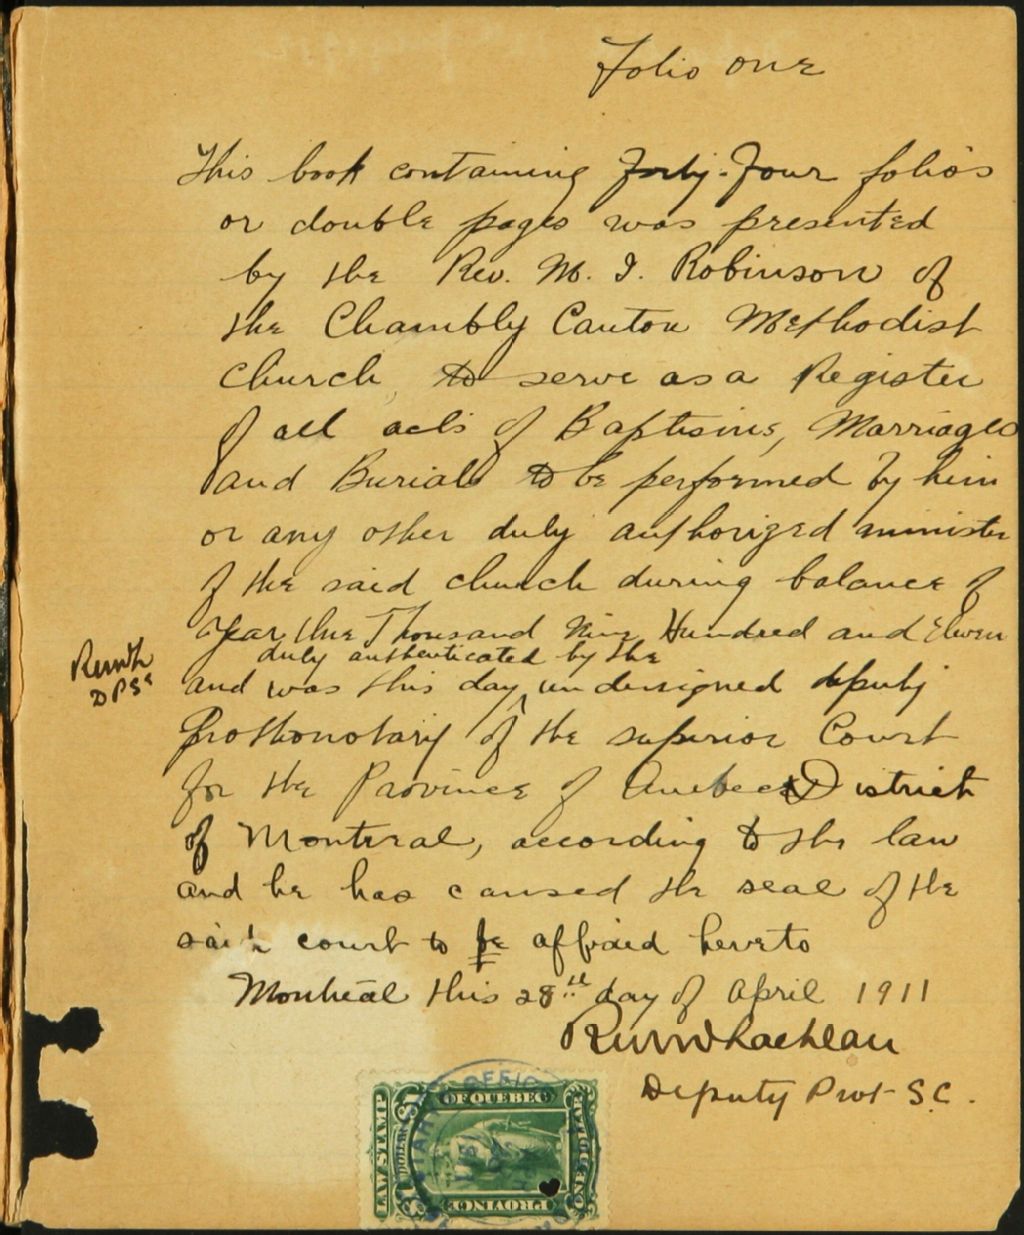 Folio one
This book containing Forty-Four folio's
or double pages was presented
by the Rev. M. I. Robinson of
the Chambly Canton Methodist
Church, to serve as a Register
of all acts of Baptisms, Marriages
and Burials to be performed by him
or any other duly authorized minister
of the said church during balance of
year One Thousand Nine Hundred and Eleven
duly authenticated by the
and was this day undersigned deputy
D PSC
Prothonotary of the superior Court
for the Province of Quebec District
of Montreal, according to the law
and he has caused the seal of the
said court to be affixed hereto
Montreal this 28th day of April 1911
Deputy Prot S.C.
LAW STAMP
$1 DOLLAR
OF QUEBEC
ONE DOLLAR
PROVINCE
OFFICE